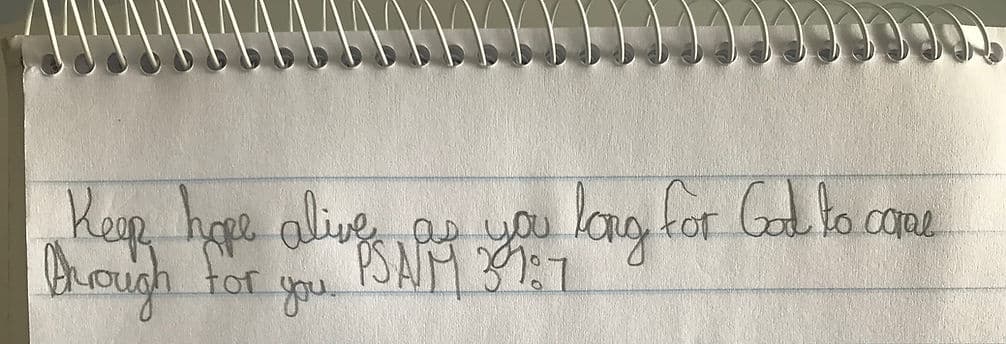 Keep hope alive as you long for God to come
through for you. PSAlM 37:7